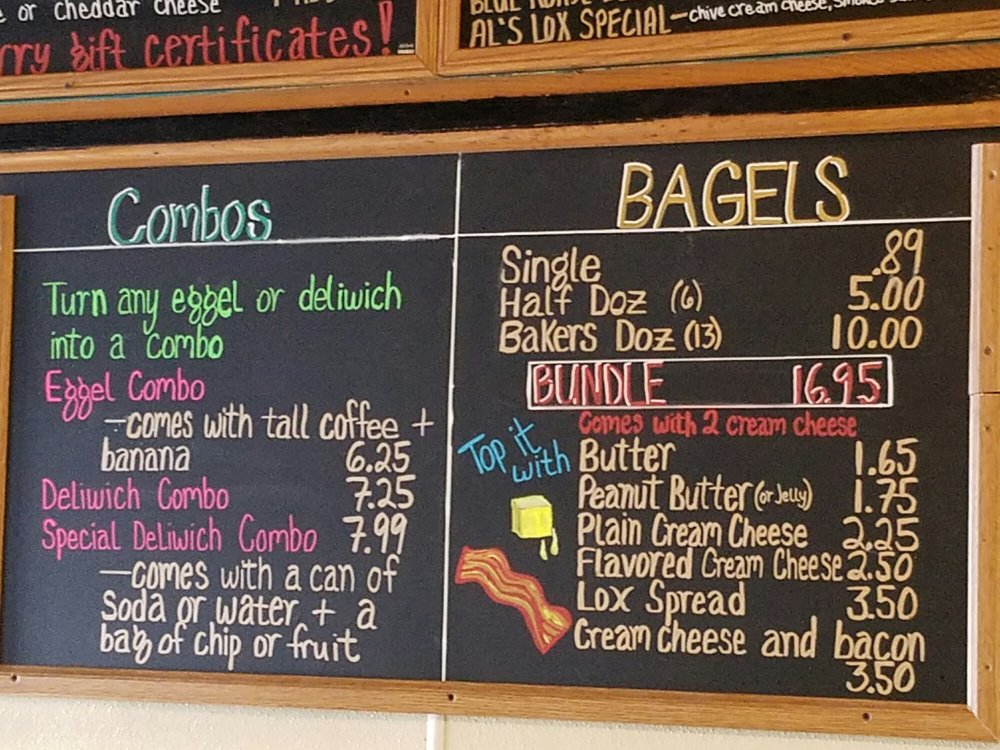 or cheddar cheese
rry gift certificates!
AL'S LOX SPECIAL—chive cream cheese,
Combos
Turn any eggel or deliwich
into a combo
Eggel Combo
—comes with tall coffee +
banana 6.25
Deliwich Combo 7.25
Special Deliwich Combo 7.99
—comes with a can of
soda or water, + a
bag of chip or fruit
BAGELS
Single .89
Half Doz (6) 5.00
Bakers Doz (13) 10.00
BUNDLE 16.95
Comes with 2 cream cheese
Top it
with
Butter 1.65
Peanut Butter (or Jelly) 1.75
Plain Cream Cheese 2.25
Flavored Cream Cheese 2.50
Lox Spread 3.50
Cream cheese and bacon
3.50